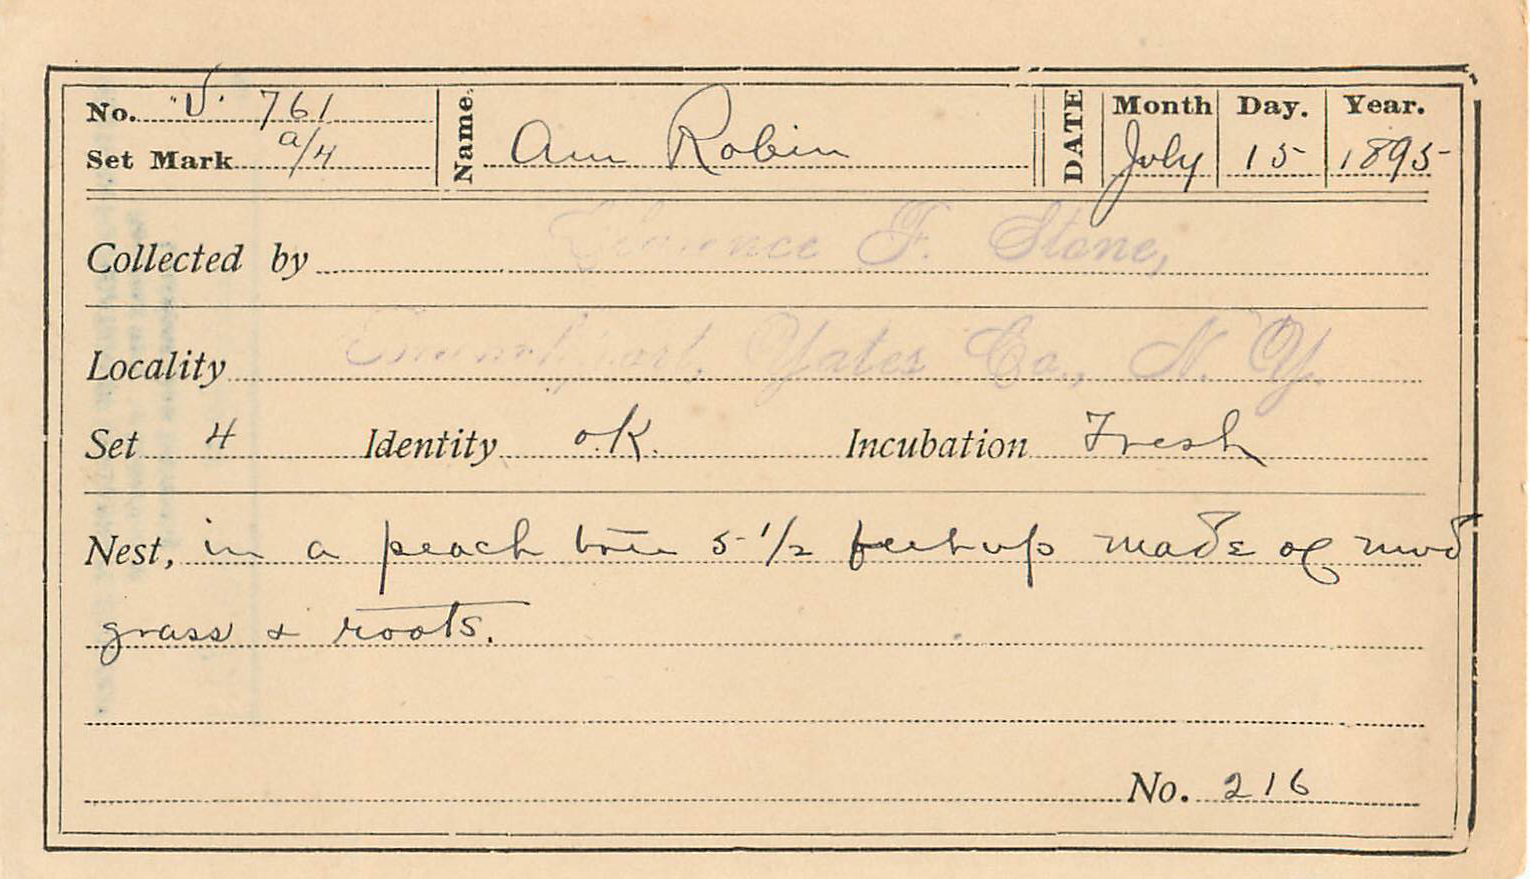 No. "U" 761 Name Am Robin DATE Month Day. Year.
Set Mark a/4 July 15 1895
Collected by Clarence F. Stone,
Locality Yates Co., N. Y.
Set 4 Identity o.K. Incubation Fresh
Nest, in a peach tree 5 1/2 feet up made of mud
grass & roots.
No. 216